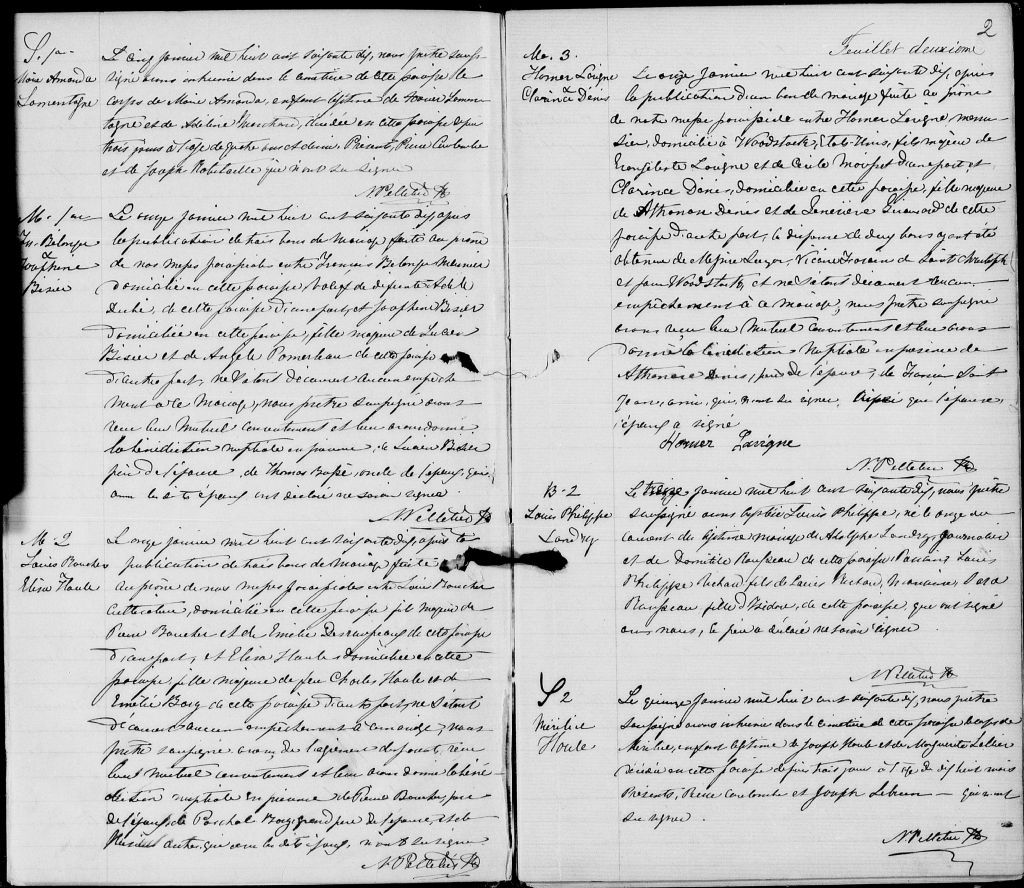 S. 1a
Marie Amanda
Lamontagne
Le cinq janvier mil huit cent soixante dix, nous prêtre sous-
signé avons inhumé dans le cimetière de cette paroisse le
corps de Marie Amanda, enfant légitime de Xavier Lamon-
tagne et de Adeline Marchand, décédée en cette paroisse depuis
trois jours à l'age de quatre ans et demi. Présents, Pierre Coulombe
et de Joseph Robitaille qui n'ont su signer
N Pelletier Ptre
M. 1a
Frs Belonge
&
Josephine
Bisier
Le onze janvier mil huit cent soixante dix après
la publication de trois bans de mariage faite au prône
de nos messes paroissiales entre François Belonge Meunier
domicilié en cette paroisse, veuf de défunte
de cette paroisse d'une part, et Josephine Bisier
domiciliée en cette paroisse, fille majeure de Lucien
Bisier et de Angèle Pomerleau de cette paroisse
d'autre part, ne s'étant découvert aucun empêche-
ment à ce mariage, nous prêtre soussigné avons
reçu leur mutuel consentement et leur avons donné
la bénédiction nuptiale en présence de Lucien Bisier
père de l'épouse, de Thomas oncle de l'époux, qui
ainsi que époux ont déclaré ne savoir signer.
N Pelletier Ptre
M 2
Louis Boucher
&
Elisa Houle
Le onze janvier mil huit cent soixante dix, après la
publication de trois bans de mariage faite
au prône de nos messes paroissiales entre Louis Boucher
cultivateur, domicilié en cette paroisse fils majeur de
Pierre Boucher et de Emélie Desruisseaux de cette paroisse
d'une part, et Elisa Houle domiciliée en cette
paroisse, fille majeure de feu Charles Houle et de
Emélie de cette paroisse d'autre part, ne s'étant
découvert aucun empêchement à ce mariage, nous
prêtre soussigné avons, de l'agrément des parents, reçu
leur mutuel consentement et leur avons donné la béné-
diction nuptiale en présence de Pierre Boucher, père
de l'époux, de Paschal grand père de l'épouse, et de
Plusieurs autres, qui comme les dits époux, n'ont su signer
N Pelletier Ptre
2
Feuillet deuxième
Ma. 3.
Homer Lavigne
&
Clarinda Denis
Le onze janvier mil huit cent soixante dix, après
la publication d'un ban de mariage faite au prône
de notre messe paroissiale entre Homer Lavigne menui-
sier, domicilié à Woodstock, Etats-Unis, fils majeur de
Lavigne et de Cécile d'une part, et
Clarinda Denis, domiciliée en cette paroisse, fille majeure
de Athanase Denis et de Geneviève de cette
paroisse d'autre part, la dispense de deux bans ayant été
obtenue de Messire Suzor, Vicaire Forain de Saint Christophe
et pour Woodstock, et ne s'étant découvert aucun
empêchement à ce mariage, nous prêtre soussigné
avons reçu leur mutuel consentement et leur avons
donné la bénédiction nuptiale en présence de
Athanase Denis, père de l'épouse, de Francis Saint
Jean, ami, qui n'ont su signer, ainsi que l'épouse,
l'époux a signé
Homer Lavigne
N. Pelletier Ptre
B-2
Louis Philippe
Landry
Le treize janvier mil huit cent soixante dix, nous prêtre
soussigné avons baptisé Louis Philippe, né le onze du
courant du légitime mariage de Adolphe Landry, journalier
et de Domitile Rousseau de cette paroisse. Parrain Louis
Philippe Richard fils de Louis Richard, Marraine,
Rousseau fille d'Isidore, de cette paroisse, qui ont signé
avec nous, le père a déclaré ne savoir signer
N Pelletier Ptre
S 2
Mérilise
Houle
Le quinze janvier mil huit cent soixante dix, nous prêtre
soussigné avons inhumé dans le cimetière de cette paroisse le corps de
Mérilise, enfant légitime de Joseph Houle et de Marguerite
décédée en cette paroisse depuis trois jours à l'age de dix huit mois
Présents, Pierre Coulombe et Joseph Lebrun — qui n'ont
su signer.
N Pelletier Ptre